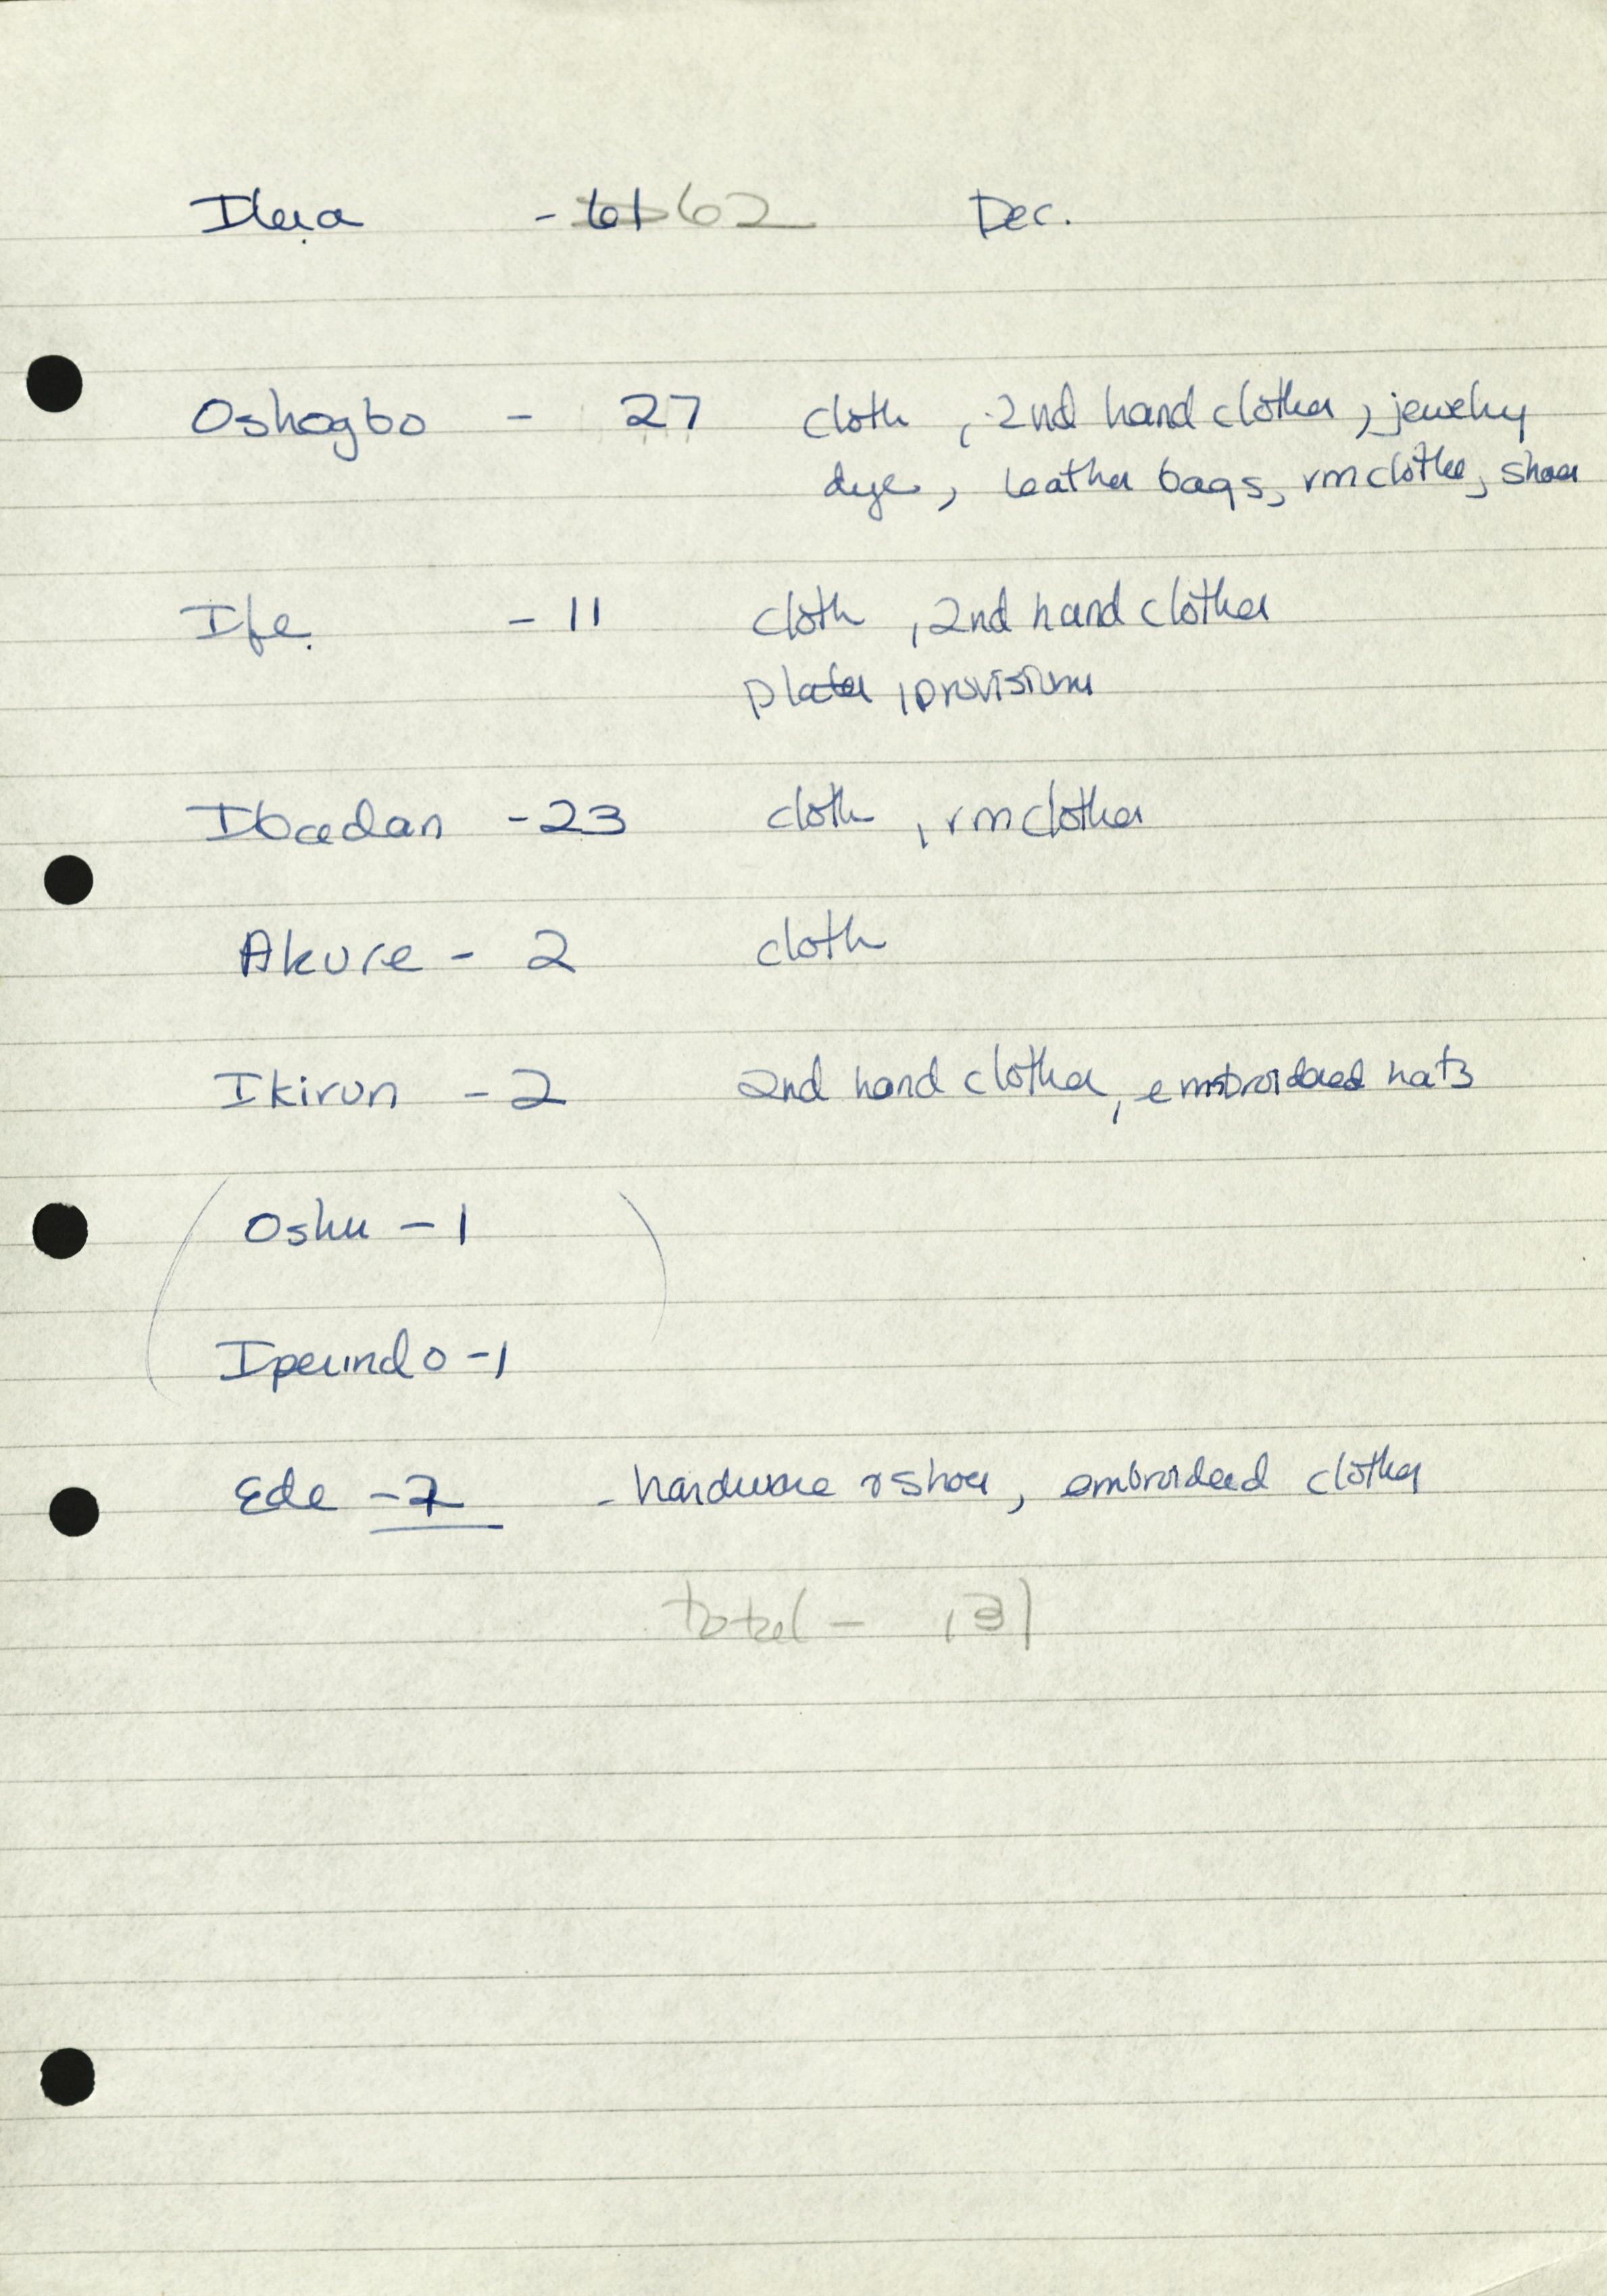 Ileṣa - 61 62 Dec.
Oshogbo - 27 cloth, 2nd hand clothes, jewelry
dye, leather bags, rm clothes, shoes
Ifẹ - 11 cloth, 2nd hand clothes
plates, provisions
Ibadan - 23 cloth, rm clothes
Akure - 2 cloth
Ikirun - 2 2nd hand clothes, embroidered hats
(Oshu - 1)
Iperindo - 1
Ede - 2 - hardware & shoes, embroidered clothes
total - 131